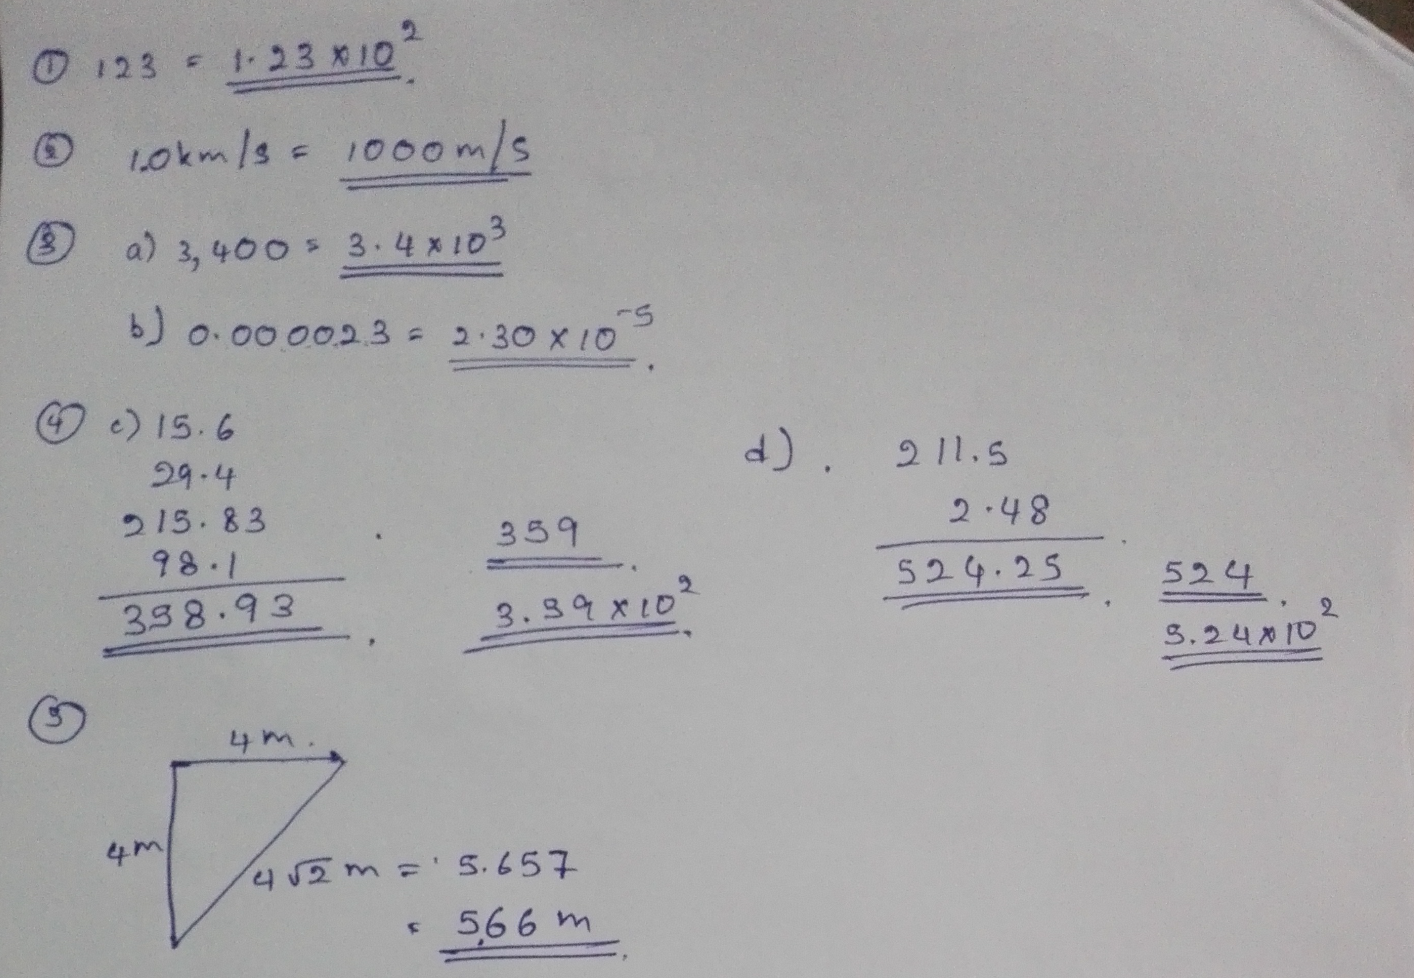 ① 123 = 1.23 × 10²
② 1.0km/s = 1000m/s
③ a) 3,400 = 3.4 × 10³
b) 0.000023 = 2.30 × 10⁻⁵
④ c) 15.6
29.4
215.83
98.1
358.93
359
3.59 × 10²
d). 211.5
2.48
524.25
524
5.24 × 10²
⑤
4m.
4m
4√2 m = 5.657
= 5.66 m